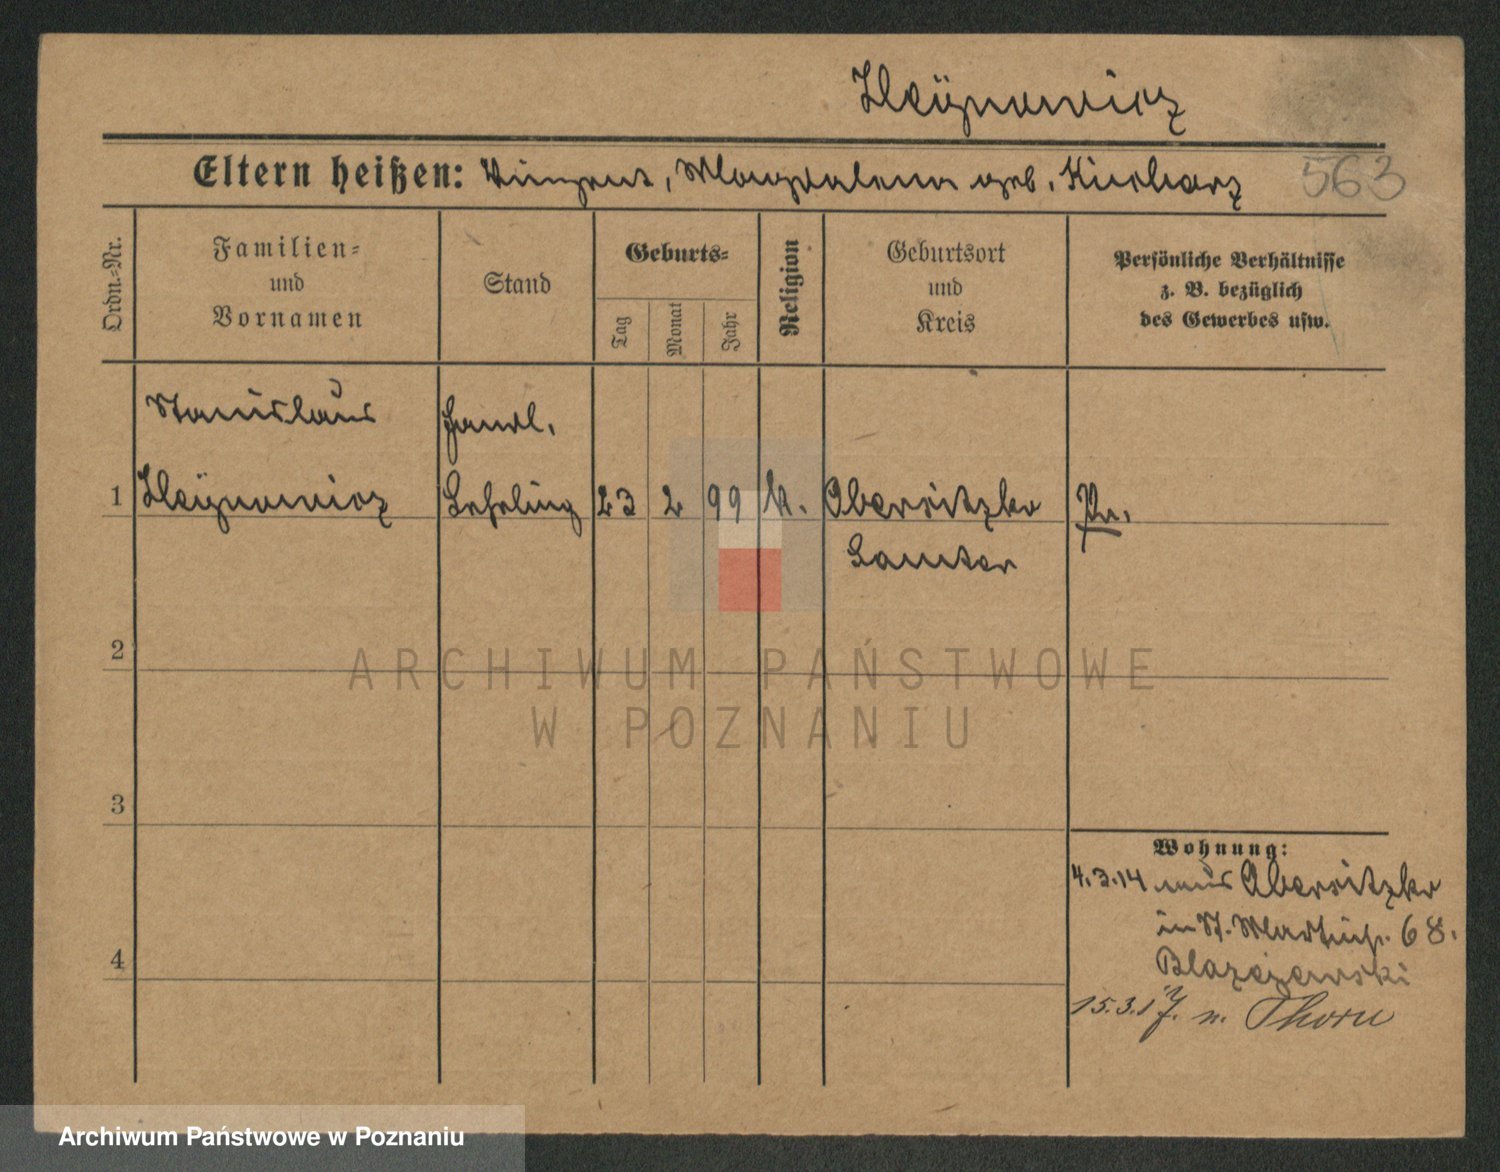 Eltern heißen: Vinzent, Magdalena geb. Kucharz
563
Ordn.-Nr.
Familien-
und
Vornamen
Stand
Geburts-
Tag
Monat
Jahr
Religion
Geburtsort
und
Kreis
Persönliche Verhältnisse
z. B. bezüglich
des Gewerbes usw.
Stanislaus
Handl.
1
Lehrling
23
2
99
k.
Obersitzko
Pr.
Samter
2
3
4
Wohnung:
4.3.14 aus Obersitzko
in St. Martinstr. 68.
Blazejewski
15.3.17. n. Thorn
ARCHIWUM PAŃSTWOWE
W POZNANIU
Archiwum Państwowe w Poznaniu